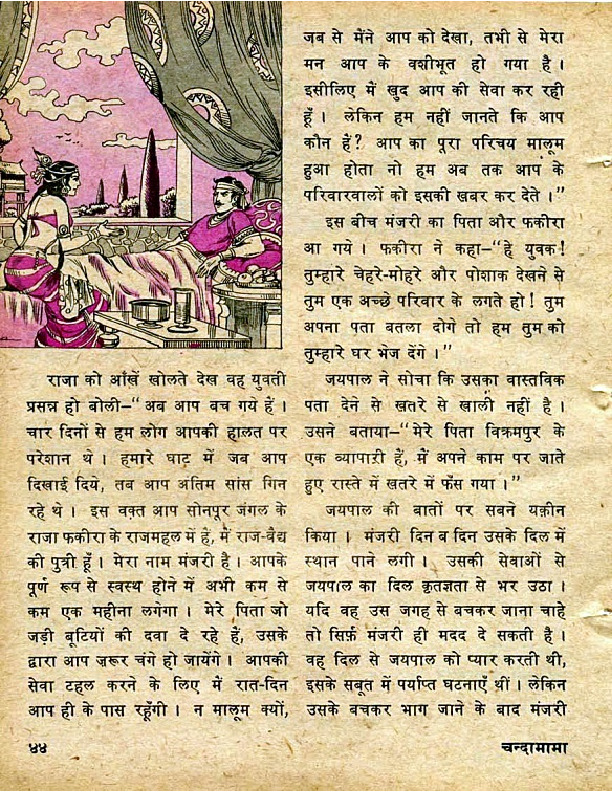 राजा को आँखें खोलते देख वह युवती
प्रसन्न हो बोली–“अब आप बच गये हैं ।
चार दिनों से हम लोग आपकी हालत पर
परेशान थे । हमारे घाट में जब आप
दिखाई दिये, तब आप अंतिम सांस गिन
रहे थे । इस वक़्त आप सोनपुर जंगल के
राजा फकीरा के राजमहल में हैं, मैं राज-वैद्य
की पुत्री हूँ । मेरा नाम मंजरी है । आपके
पूर्ण रूप से स्वस्थ होने में अभी कम से
कम एक महीना लगेगा । मेरे पिता जो
जड़ी बूटियों की दवा दे रहे हैं, उसके
द्वारा आप ज़रूर चंगे हो जायेंगे । आपकी
सेवा टहल करने के लिए मैं रात-दिन
आप ही के पास रहूँगी । न मालूम क्यों,
जब से मैंने आप को देखा, तभी से मेरा
मन आप के वशीभूत हो गया है ।
इसीलिए मैं खुद आप की सेवा कर रही
हूँ । लेकिन हम नहीं जानते कि आप
कौन हैं? आप का पूरा परिचय मालूम
हुआ होता नो हम अब तक आप के
परिवारवालों को इसकी खबर कर देते ।”
इस बीच मंजरी का पिता और फकीरा
आ गये । फकीरा ने कहा–“हे युवक!
तुम्हारे चेहरे-मोहरे और पोशाक देखने से
तुम एक अच्छे परिवार के लगते हो! तुम
अपना पता बतला दोगे तो हम तुम को
तुम्हारे घर भेज देंगे ।”
जयपाल ने सोचा कि उसका वास्तविक
पता देने से खतरे से खाली नहीं है ।
उसने बताया–“मेरे पिता विक्रमपुर के
एक व्यापारी हैं, मैं अपने काम पर जाते
हुए रास्ते में खतरे में फँस गया ।”
जयपाल की बातों पर सबने यक़ीन
किया । मंजरी दिन ब दिन उसके दिल में
स्थान पाने लगी । उसकी सेवाओं से
जयपाल का दिल कृतज्ञता से भर उठा ।
यदि वह उस जगह से बचकर जाना चाहे
तो सिर्फ़ मंजरी ही मदद दे सकती है ।
वह दिल से जयपाल को प्यार करती थी,
इसके सबूत में पर्याप्त घटनाएँ थीं । लेकिन
उसके बचकर भाग जाने के बाद मंजरी
४४
चन्दामामा